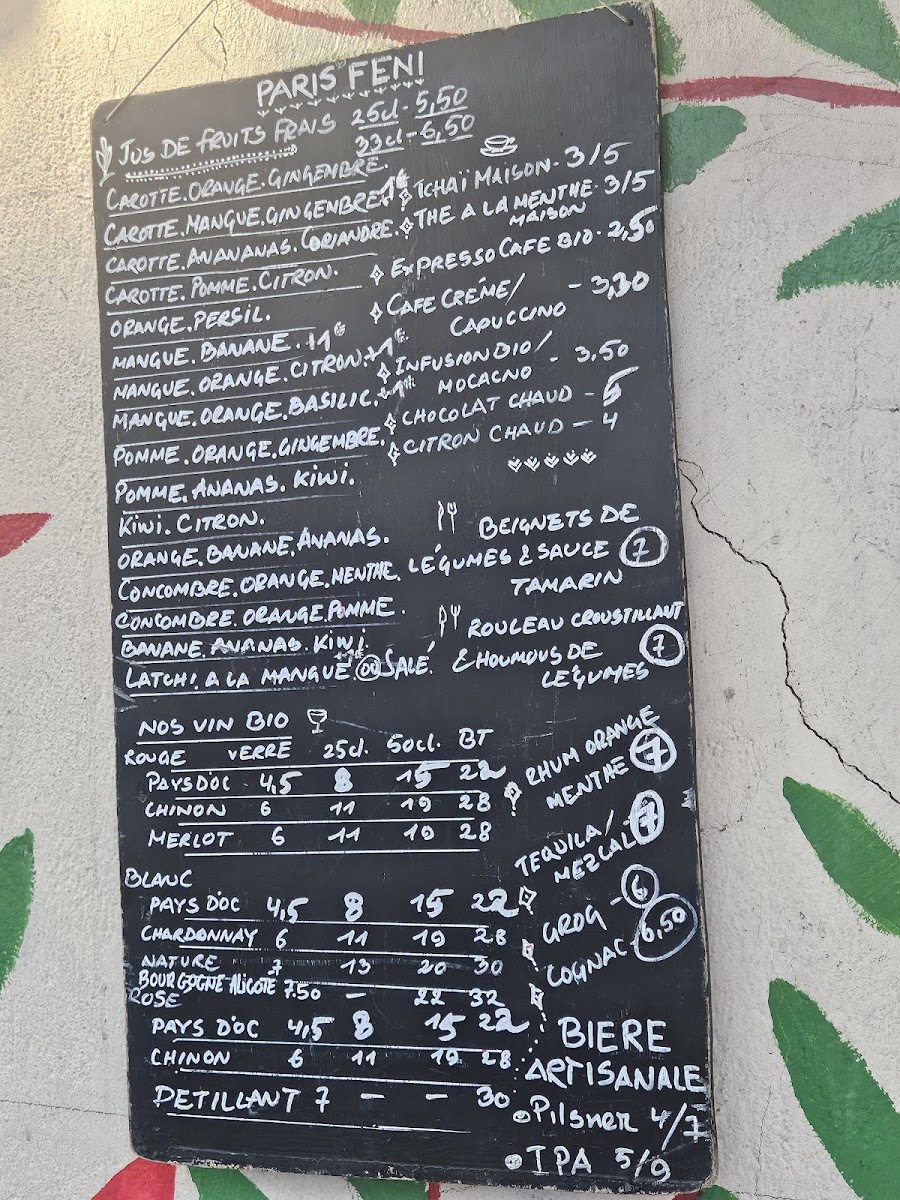 PARIS FENI
JUS DE FRUITS FRAIS 25cl - 5,50
33cl - 6,50
CAROTTE.ORANGE.GINGEMBRE.
CAROTTE.MANGUE.GINGENBRE+1€
CAROTTE.ANANANAS.CORIANDRE.
CAROTTE.POMME.CITRON.
ORANGE.PERSIL.
MANGUE.BANANE.+1€
MANGUE.ORANGE.CITRON.+1€
MANGUE.ORANGE.BASILIC.+1€
POMME.ORANGE.GINGEMBRE.
POMME.ANANAS.KIWI.
KIWI.CITRON.
ORANGE.BANANE.ANANAS.
CONCOMBRE.ORANGE.MENTHE.
CONCOMBRE.ORANGE.POMME.
BANANE.ANANAS.KIWI.
LATCHI.A LA MANGUE OÙ SALÉ.
TCHAÏ MAISON - 3/5
THE A LA MENTHE - 3/5
MAISON
EXPRESSO CAFE BIO - 2,50
CAFE CRÉME/ - 3,30
CAPUCCINO
INFUSION BIO/
MOCACNO - 3,50
CHOCOLAT CHAUD - 5
CITRON CHAUD - 4
BEIGNETS DE
LÉGUMES & SAUCE 7
TAMARIN
ROULEAU CROUSTILLANT
& HOUMOUS DE 7
LÉGUMES
NOS VIN BIO
ROUGE VERRE 25cl. 50cl. BT
PAYS D'OC 4,5 8 15 22
CHINON 6 11 19 28
MERLOT 6 11 19 28
BLANC
PAYS D'OC 4,5 8 15 22
CHARDONNAY 6 11 19 28
NATURE 7 13 20 30
BOURGOGNE ALIGOTE 7.50 - 22 32
ROSE
PAYS D'OC 4,5 8 15 22
CHINON 6 11 19 28
PETILLANT 7 - - 30
RHUM ORANGE
MENTHE 7
TEQUILA/
MEZCAL 7
GROG - 6
COGNAC - 6,50
BIERE
ARTISANALE
Pilsner 4/7
IPA 5/9